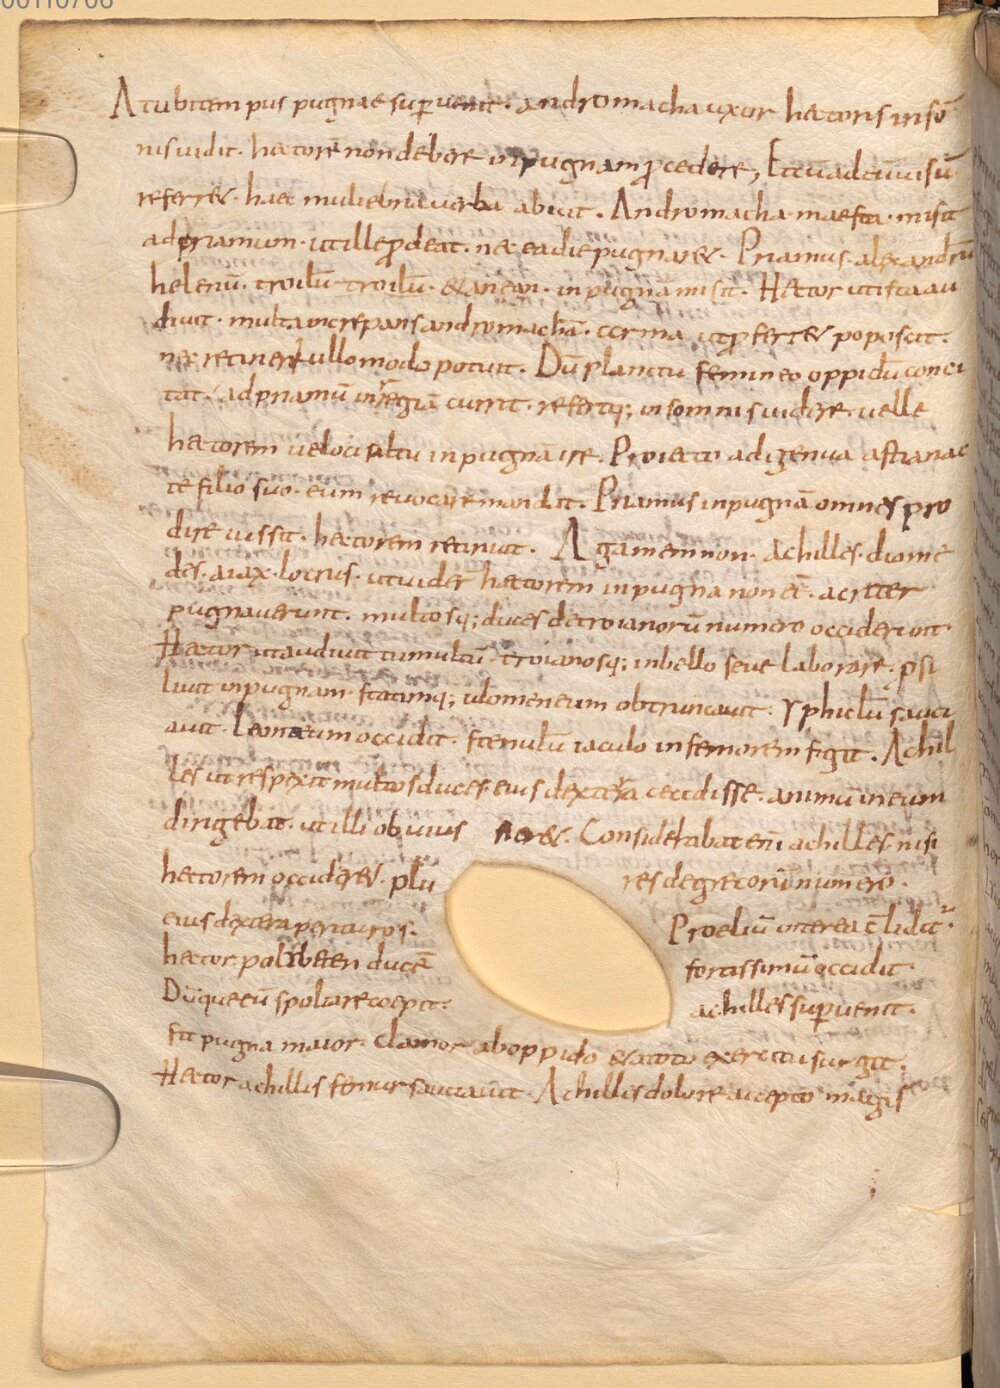 00110706
Atubitempus pugnae superuenit. andromacha uxor hectoris in sō
nis uidit. hectorē non debere in pugnam ꝓcedere, Et cū ad eū uisū
referret. haec muliebria uerba abiuit. Andromacha maesta misit
ad priamum. ut ille ꝓdeat. ne ea die pugnaret. Priamus alexandrū
helenū. troilū troilū. & anean. in pugnā misit. Hector ut ista au
diuit. multa increpans andromachā. corma ut ꝓferret poposcit.
nec retineri ullo modo potuit. Dū planctu femineo oppidū conci
tat. ad priamū in regiā currit. refertq; in somnis uidisse uelle
hectorem ueloci saltu in pugnā ire. Proiecto ad genua astianac
te filio suo. eum reuocare mandat. Priamus in pugnā omnes pro
dire iussit. hectorem retinuit. Agamemnon. achilles. diome
des. aiax. locrus. ut uider hectorem in pugna non eē. acriter
pugnauerunt. multosq; duces de troianorū numero occiderunt.
Hector ut audiuit tumultū. troianosq; in bello seue laborare. ꝓsi
liuit in pugnam. statimq; idomeneum obtruncauit. Yphiclū sauci
auit. Leonteum occidit. stenulū iaculo in femorem figit. Achil
les ut respexit multos duces eius dextera cecidisse. animū in eum
dirigebat. ut illi obuius fieret. Considerabat enī achilles. nisi
hectorem occideret. plu res de grecorū numero.
eius dextera perituros. Proeliū interea c̄lidit
hector polibeten ducē fortissimū occidit.
Dūque eū spoliare coepit. achilles superuenit.
fit pugna maior. clamor ab oppido & a toto exercitu surgit.
Hector achillis femur sauciauit. Achilles dolore accepto magis